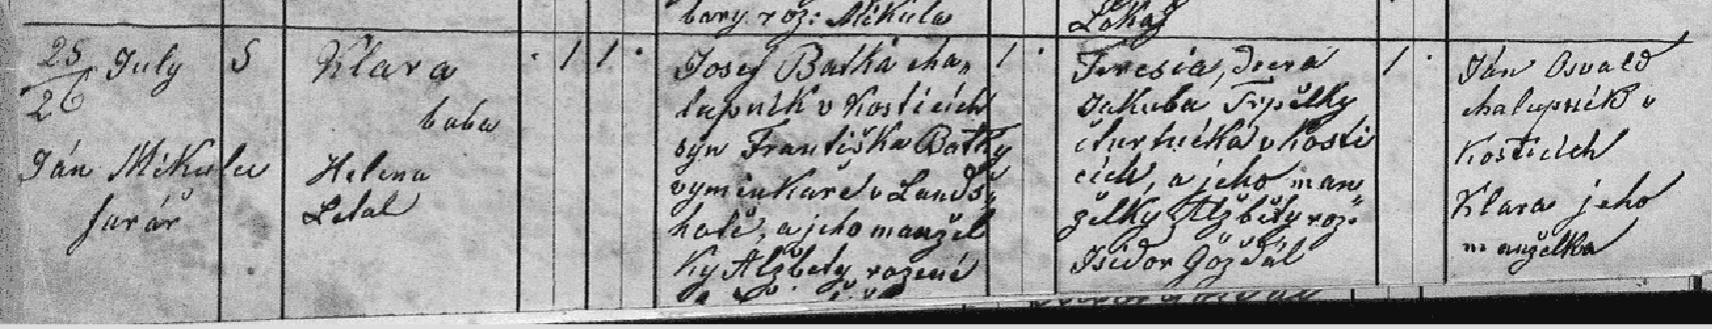 bary roz: Mikula
Lokaj
25/26 July
5
Klara
baba
Helena
Letal
Ján Mikulu
farár
1 1
Josef Batka cha„
lupník v Kosticích
syn Františka Batky
vyminkare v Lands„
hotě, a jeho manžel
ky Alžběty rozené
1
Teresia, dcera
Jakuba Trpělky
čturtníka v Kosti
cích, a jeho man
želky Alžběty roz:
Isidor
1
Ján Osvald
chalupník v
Kosticích
Klara jeho
manželka